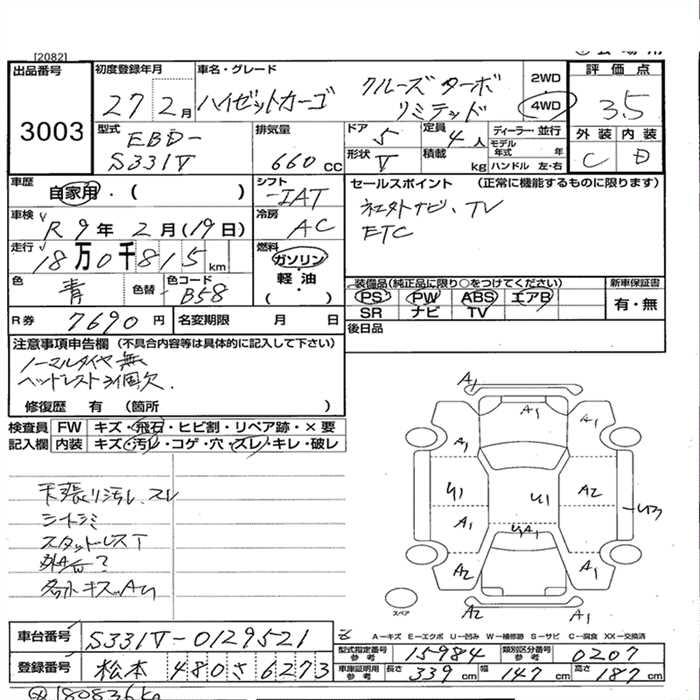 [2082]
出品番号
3003
初度登録年月
27年2月
車名・グレード
ハイゼットカーゴ クルーズターボ
リミテッド
2WD
4WD
評価点
3.5
外装 内装
C D
型式
EBD-
S331V
排気量
660 cc
ドア 5
定員 4人
形状 V
積載 kg
ディーラー・並行
モデル年式 年
ハンドル 左・右
車歴
自家用・( )
シフト
IAT
セールスポイント (正常に機能するものに限ります)
社外ナビ、TV
ETC
車検
R9年2月(19日)
冷房
AC
走行
18万0千815km
燃料
ガソリン・
軽・油
( )
色
青
色替
色コード
B58
装備品(純正品に限り○をつけてください)
PS PW ABS エアB
SR ナビ TV
新車保証書
有・無
R券 7690円
名変期限 月 日
後日品
注意事項申告欄(不具合内容等は具体的に記入して下さい)
ノーマルタイヤ無
ヘッドレスト2個欠.
修復歴 有 (箇所 )
検査員記入欄
FW キズ・飛石・ヒビ割・リペア跡・×要
内装 キズ・汚レ・コゲ・穴・スレ・キレ・破レ
天張り汚レ、スレ
シートシミ
スタッドレスT
外品?
各外キズ、AU
A1
A1
A1
A1
U1
U1
A2
A1
U3
A2
A1
A2
A1
スペア
A-キズ E-エクボ U-凹み W-補修跡 S-サビ C-腐食 XX-交換済
車台番号 S331V-0129521
型式指定番号参考 15984
類別区分番号参考 0207
登録番号 松本 480 さ 6273
車庫証明用参考 長さ 339 cm 幅 147 cm 高さ 187 cm
180836km